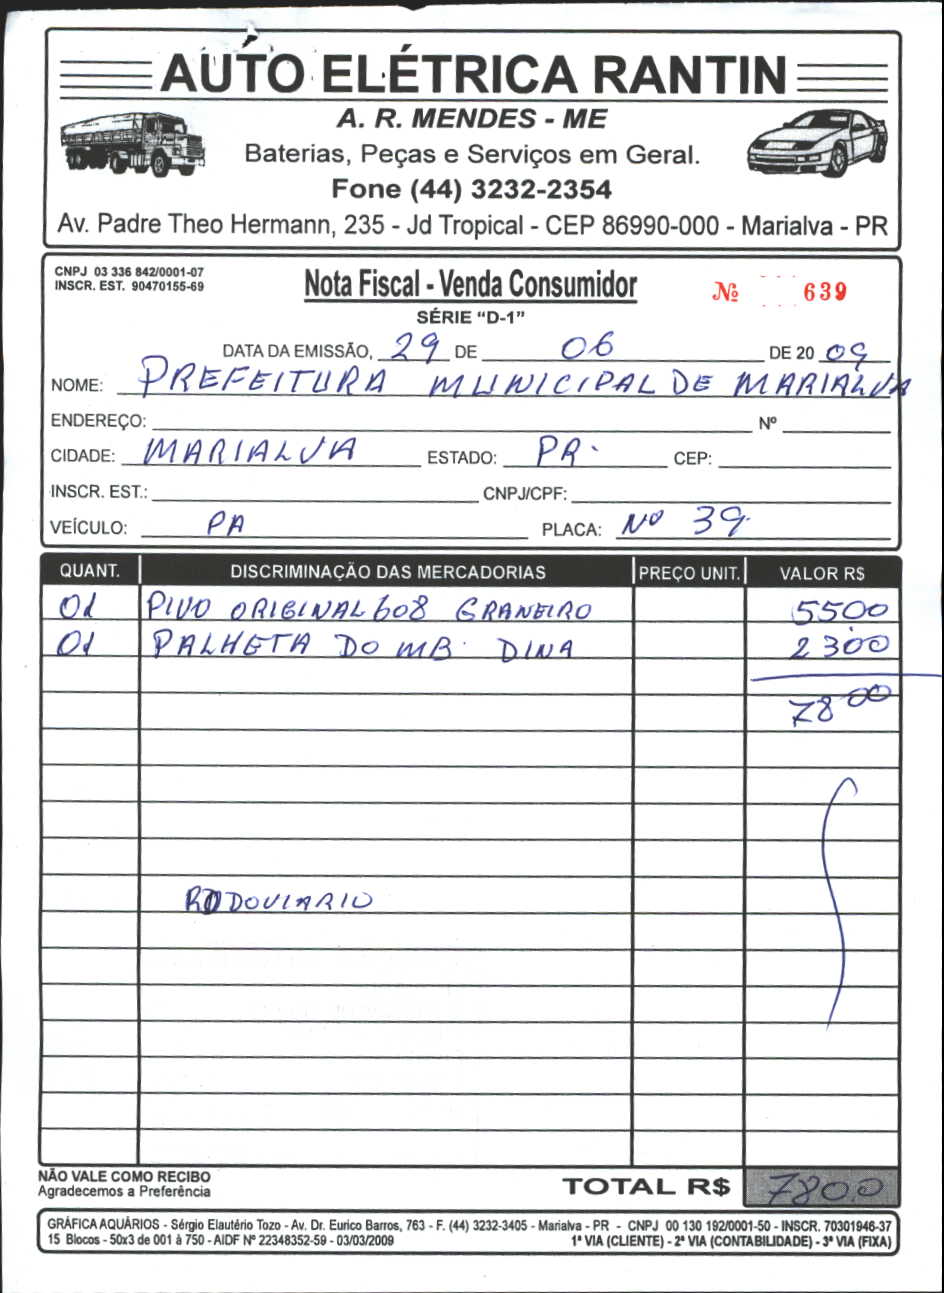 AUTO ELÉTRICA RANTIN
A. R. MENDES - ME
Baterias, Peças e Serviços em Geral.
Fone (44) 3232-2354
Av. Padre Theo Hermann, 235 - Jd Tropical - CEP 86990-000 - Marialva - PR
CNPJ 03 336 842/0001-07
INSCR. EST. 90470155-69
Nota Fiscal - Venda Consumidor
Nº 639
SÉRIE "D-1"
DATA DA EMISSÃO, 29 DE 06 DE 20 09
NOME: PREFEITURA MUNICIPAL DE MARIALVA
ENDEREÇO: Nº
CIDADE: MARIALVA ESTADO: PR. CEP:
INSCR. EST.: CNPJ/CPF:
VEÍCULO: PA PLACA: Nº 39
QUANT. DISCRIMINAÇÃO DAS MERCADORIAS PREÇO UNIT. VALOR R$
01 PIVO ORIGINAL 608 GRANEIRO 5500
01 PALHETA DO MB. DINA 2300
7800
RODOVIARIO
NÃO VALE COMO RECIBO
Agradecemos a Preferência
TOTAL R$ 7800
GRÁFICA AQUÁRIOS - Sérgio Elautério Tozo - Av. Dr. Eurico Barros, 763 - F. (44) 3232-3405 - Marialva - PR - CNPJ 00 130 192/0001-50 - INSCR. 70301946-37
15 Blocos - 50x3 de 001 à 750 - AIDF Nº 22348352-59 - 03/03/2009 1ª VIA (CLIENTE) - 2ª VIA (CONTABILIDADE) - 3ª VIA (FIXA)